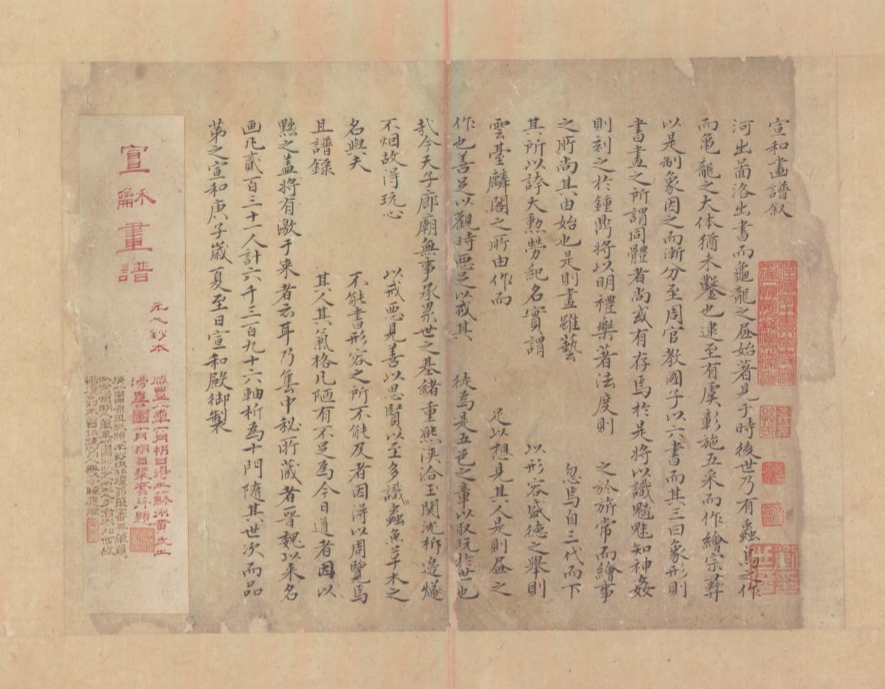 宣和畫譜叙
河出啚洛出書而龜龍之畫始著見于時後世乃有蟲鳥之作
而龜龍之大体猶未鑿也逮至有虞彰施五采而作繪宗彝
以是制象因之而漸分至周官教國子以六書而其三曰象形則
書畫之所謂同體者尚或有存焉於是將以識魑魅知神姦
則刻之於鍾鼎將以明禮樂著法度則 之於旂常而繪事
之所尚其由始也是則畫雖藝 忽焉自三代而下
其所以誇大勲勞紀名實謂 以形容盛德之舉則
雲臺麟閣之所由作而 足以想見其人是則畫之
作也善足以觀時惡足以戒其 徒為是五色之章以取玩於世也
哉今天子廊廟無事承累世之基緒重熙浹洽玉關沈柝邊燧
不烟故得玩心 以戒惡見善以思賢以至多識蟲魚草木之
名與夫 不能書形容之所不能及者因得以周覽焉
且譜錄 其人其氣格凡陋有不足為今日道者因以
黜之盖將有激于来者云耳乃集中秘所藏者晋魏以来名
画凡貳百三十一人計六千三百九十六軸析為十門隨其世次而品
第之宣和庚子嵗夏至日宣和殿御製
宣龢畫譜
元人鈔本